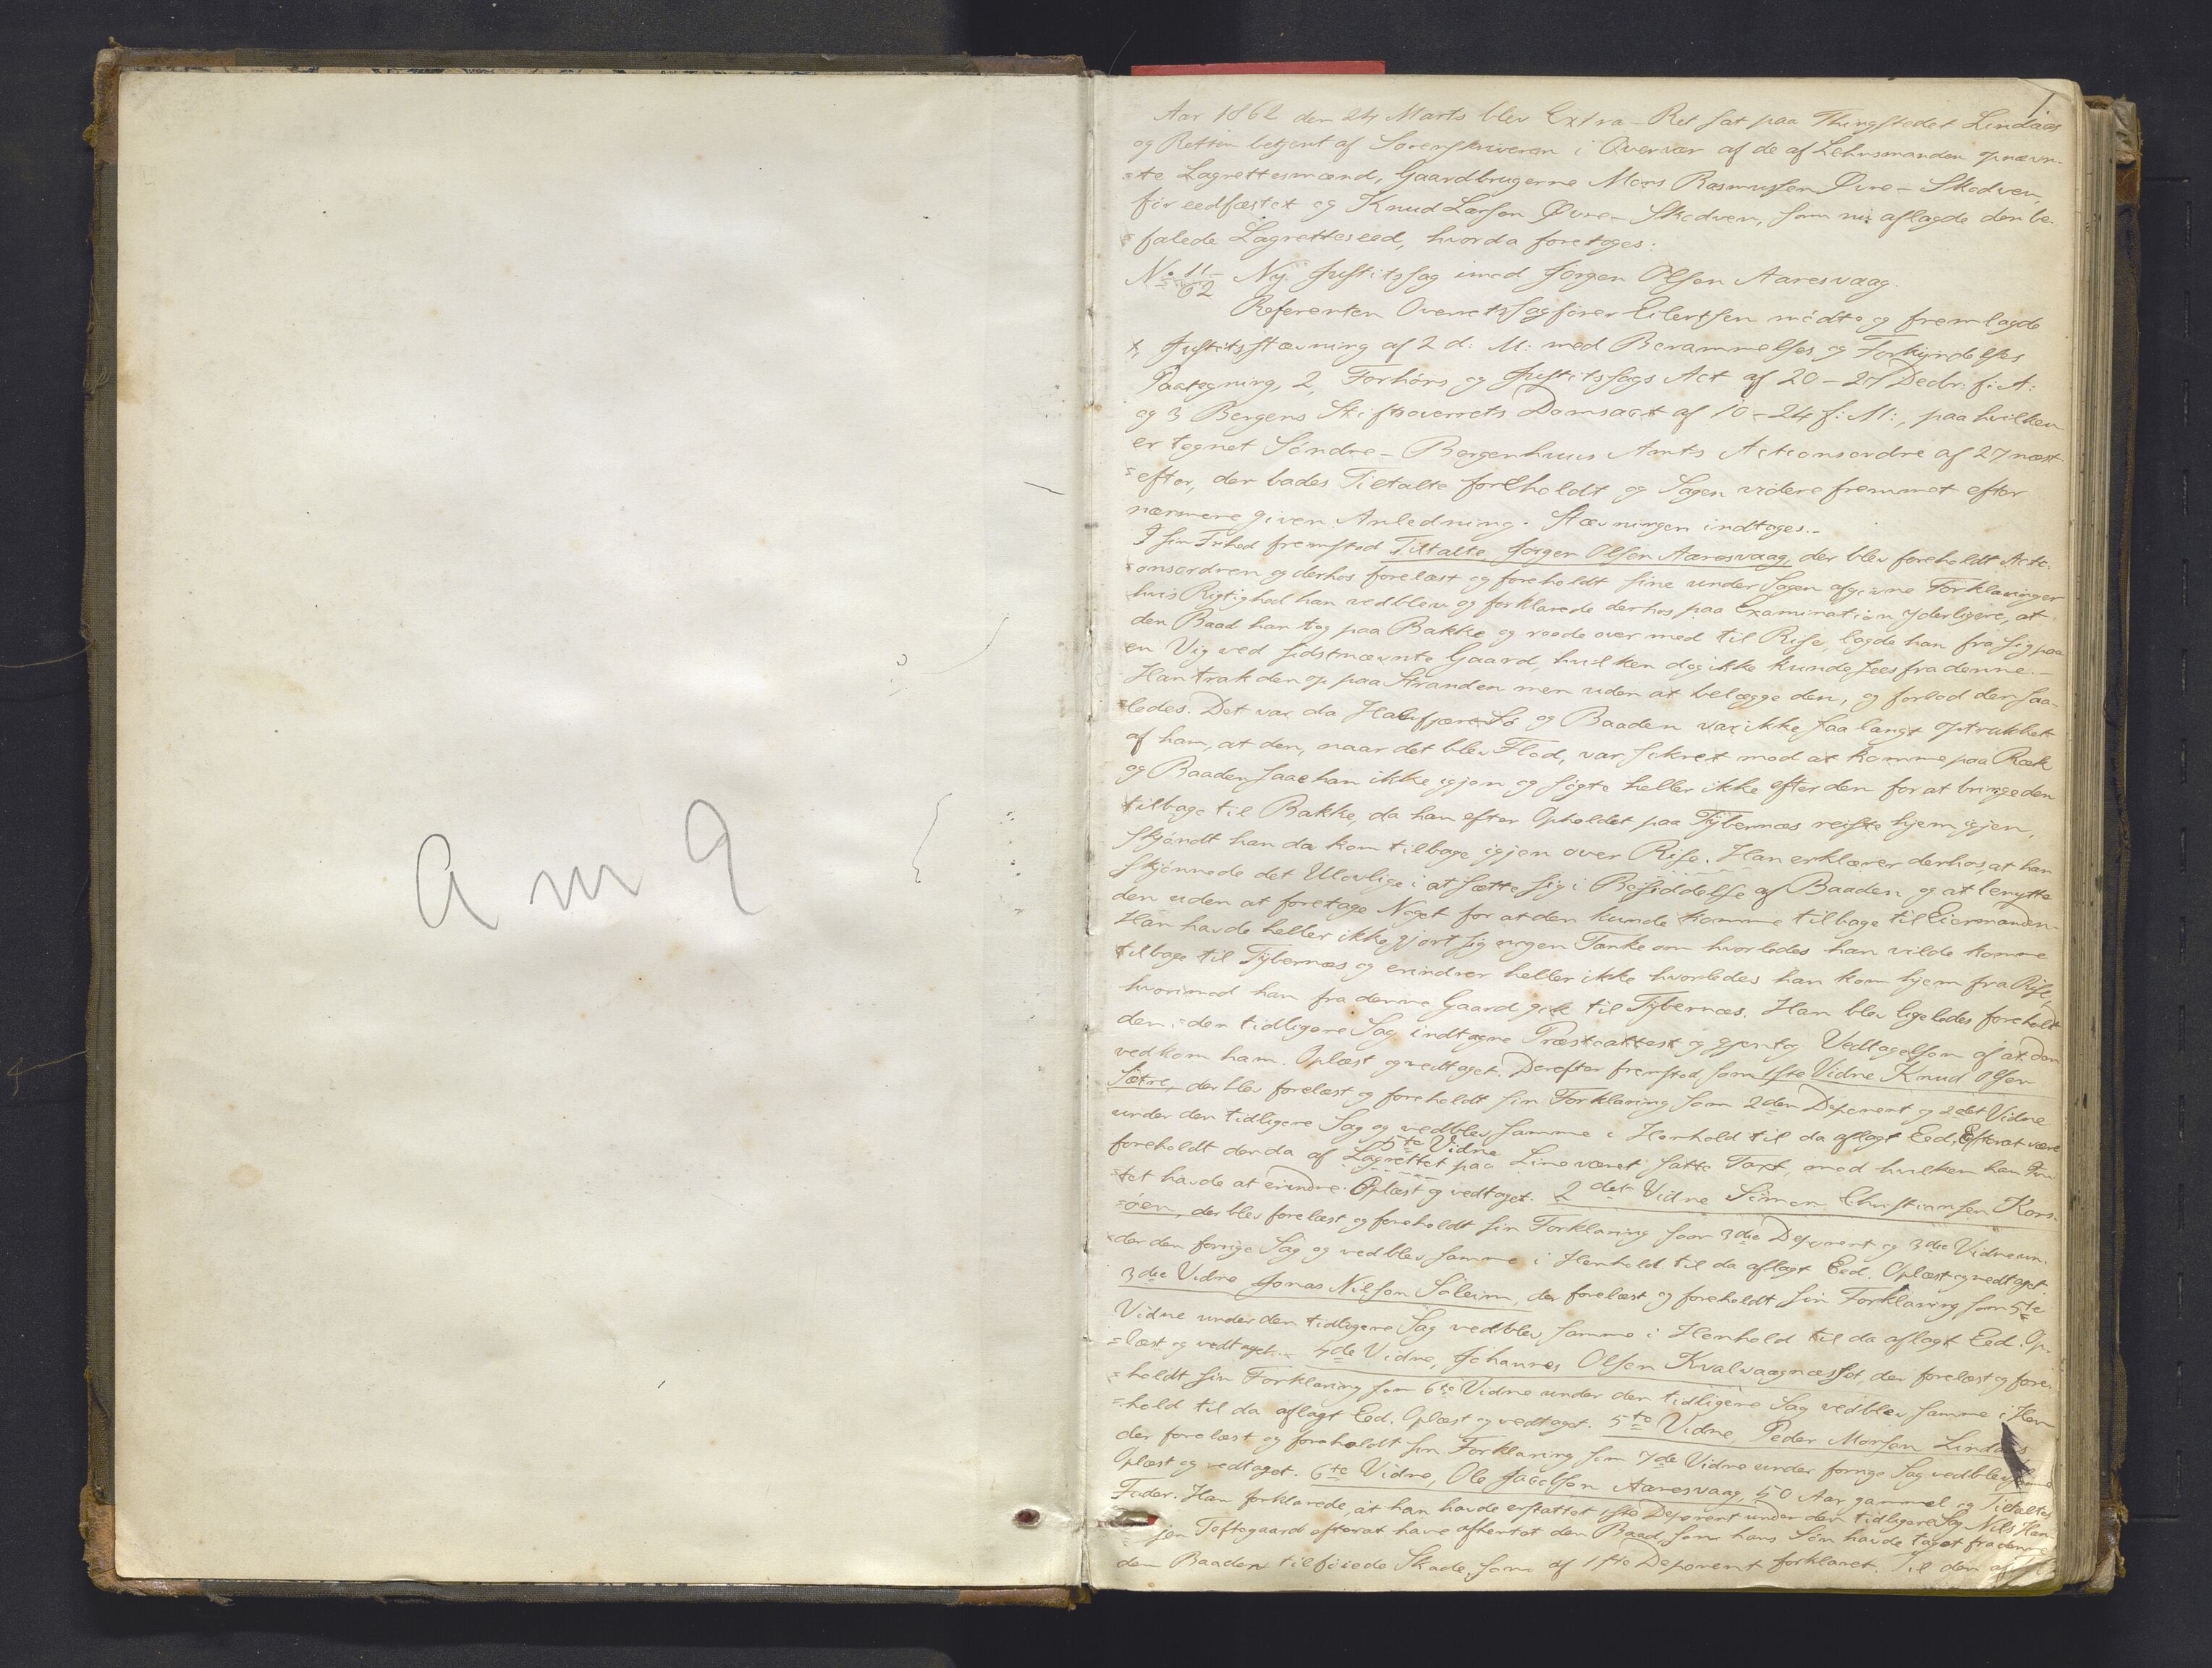 a m 9
1.
Aar 1862 den 24 Marts blev Extra-Ret sat paa Thingstedet Lindaas
og Retten betjent af Sorenskriveren i Overvær af de af Lehnsmanden opnævn-
=te Lagrettesmænd, Gaardbrugerne Mons Rasmussen Øvre-Skodven,
før eedfæstet og Knud Larsen Øvre-Skodven, som nu aflagde den be-
=falede Lagretteseed, hvorda foretoges:
No 11/62 Ny Justitssag imod Jørgen Olsen Aaresvaag.
Referenten Overretssagfører Eilertsen mødte og fremlagde
1, Justitsstævning af 2 d: M: med Berammelses og Forkyndelses
Paategning, 2, Forhørs og Justitssags Act af 20-27 Decbr: f: A:
og 3 Bergens Stiftsoverrets Domsact af 10-24 f: M:, paa hvilken
er tegnet Søndre-Bergenhuus Amts Actionsordre af 27 næst
=efter, der bades Tiltalte foreholdt og Sagen videre fremmet efter
nærmere given Anledning. Stævningen indtages.-
I sin Frihed fremstod Tiltalte Jørgen Olsen Aaresvaag, der blev foreholdt Acti-
=onsordren og derhos forelæst og foreholdt sine under Sagen afgivne Forklaringer
hvis Rigtighed han vedblev og forklarede derhos paa Examination yderligere, at
den Baad han tog paa Bakke og roede over med til Rise, lagde han fra sig paa
en Vig ved sidstnævnte Gaard, hvilken dog ikke kunde sees fra denne.-
Han trak den op paa Stranden men uden at belægge den, og forlod den saa-
=ledes. Det var da Halvfjære Sø og Baaden var ikke saa langt optrukket
af ham, at den, naar det blev Flod, var sikret mod at komme paa Ræk
og Baaden saae han ikke igjen og søgte heller ikke efter den for at bringe den
tilbage til Bakke, da han efter Opholdet paa Fybernæs reiste hjem igjen,
skjøndt han da kom tilbage igjen over Rise. Han erklærer derhos, at han
skjønnede det Ulovlige i at sætte sig i Besiddelse af Baaden og at benytte
den uden at foretage Noget for at den kunde komme tilbage til Eiermanden.
Han havde heller ikke gjort sig nogen Tanke om hvorledes han vilde komme
tilbage til Fybernæs og erindrer heller ikke hvorledes han kom hjem fra Rise,
hvorimod han fra denne Gaard gik til Fybernæs. Han blev ligeledes foreholdt
den i den tidligere Sag indtagne Præsteattest og gjentog Vedtagelsen af at den
vedkom ham. Oplæst og vedtaget. Derefter fremstod som 1ste Vidne Knud Olsen
Sætre, der blev forelæst og foreholdt sin Forklaring som 2den Deponent og 2det Vidne
under den tidligere Sag og vedblev samme i Henhold til da aflagt Eed, Efterat være
foreholdt den da af Lagrettet 5te Vidne paa Lineværet satte Taxt, mod hvilken han In-
tet havde at erindre. Oplæst og vedtaget. 2det Vidne Simen Christiansen Kors-
=øen, der blev forelæst og foreholdt sin Forklaring som 3die Deponent og 3die Vidne un-
der den forrige Sag og vedblev samme i Henhold til da aflagt Eed. Oplæst og vedtaget.
3die Vidne Jonas Nilsen Søleim, der forelæst og foreholdt sin Forklaring som 5te
Vidne under den tidligere Sag vedblev samme i Henhold til da aflagt Eed. Op-
=læst og vedtaget.- 4de Vidne, Johannes Olsen Kvalvaagnæsset, der forelæst og fore-
=holdt sin Forklaring som 6te Vidne under den tidligere Sag vedblev samme i Hen
=hold til da aflagt Eed. Oplæst og vedtaget. 5te Vidne, Peder Monsen Lindaas
der forelæst og foreholdt sin Forklaring som 7de Vidne under forrige Sag vedblev samme
Oplæst og vedtaget. 6te Vidne, Ole Jacobsen Aaresvaag, 50 Aar gammel og Tiltaltes
Fader. Han forklarede, at han havde erstattet 1ste Deponent under den tidligere Sag Nils Han
jen Toftegaard efterat have afhentet den Baad, som hans Søn havde taget fra denne
den Baaden tilføiede Skade, som af 1ste Deponent forklaret. Til den af